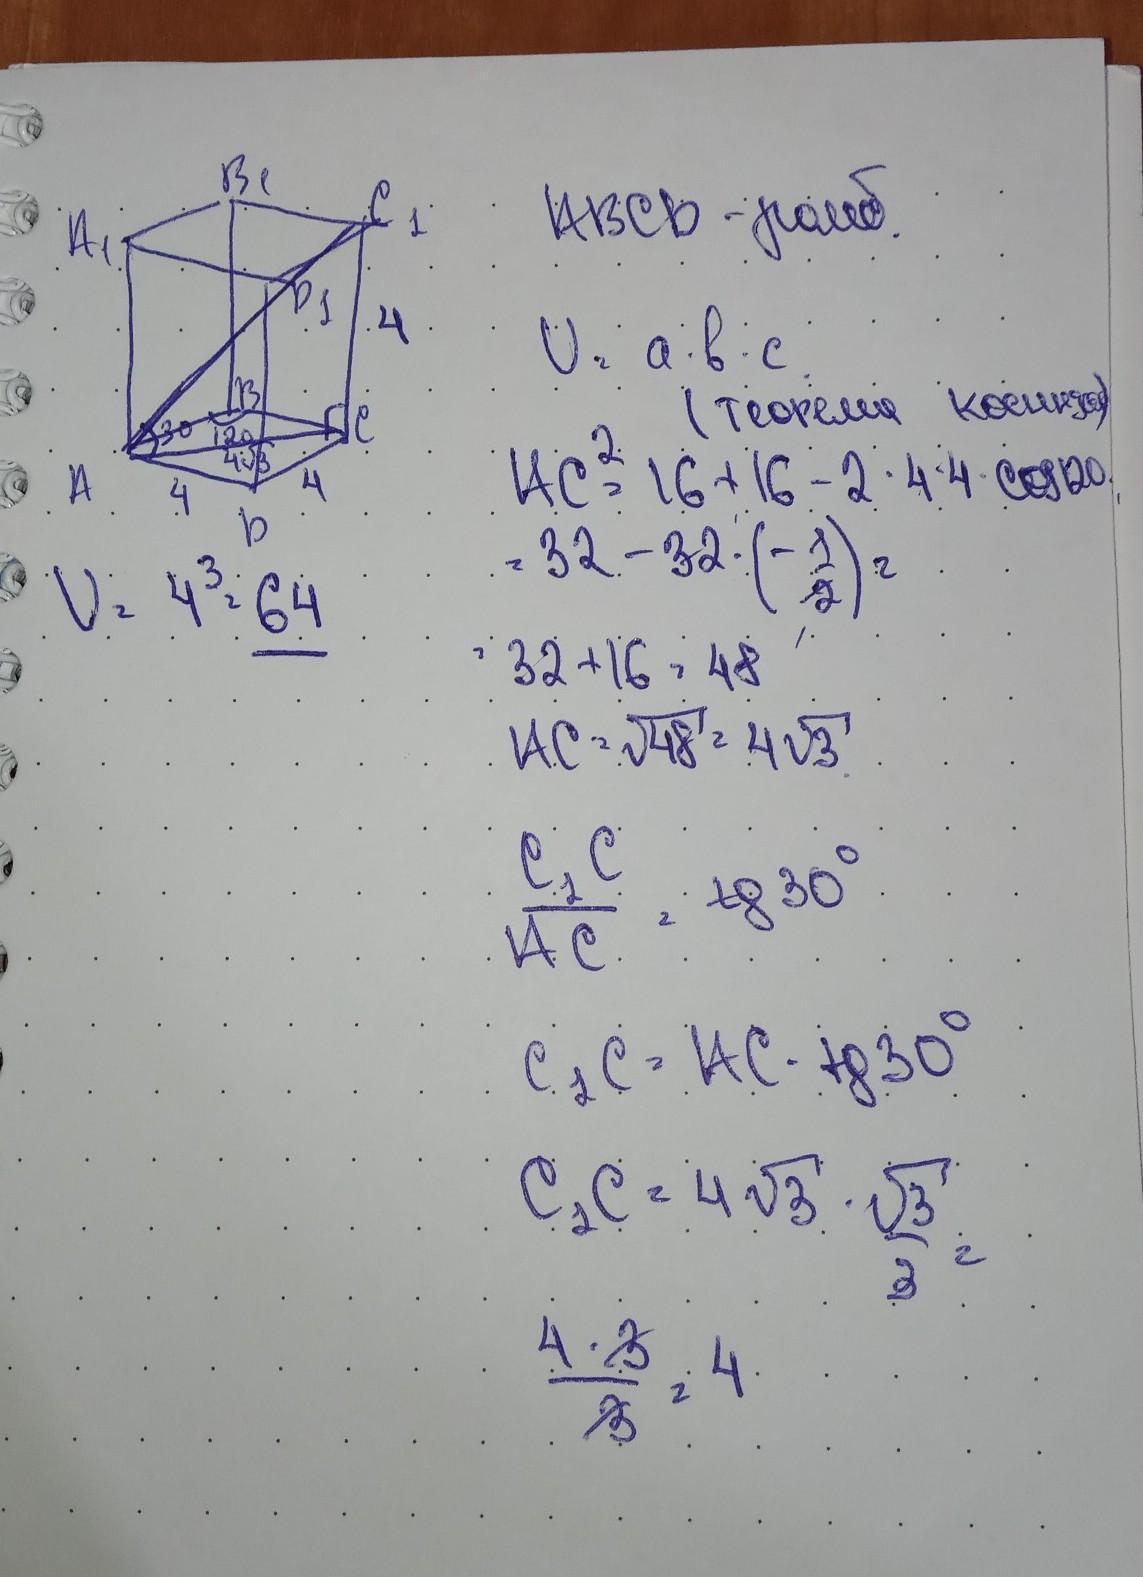 B₁
A₁
C1
D1
4
B
30
120
C
4√3
A
4
4
D
V = 4³ = 64
ABCD - ромб.
V = a · b · c
(теорема косинусов)
AC² = 16 + 16 - 2 · 4 · 4 · cos120
= 32 - 32 · (- 1/2) =
= 32 + 16 = 48
AC = √48 = 4√3
C₁C / AC = tg 30°
C₁C = AC · tg 30°
C₁C = 4√3 · √3/3 =
4 · 3 / 3 = 4